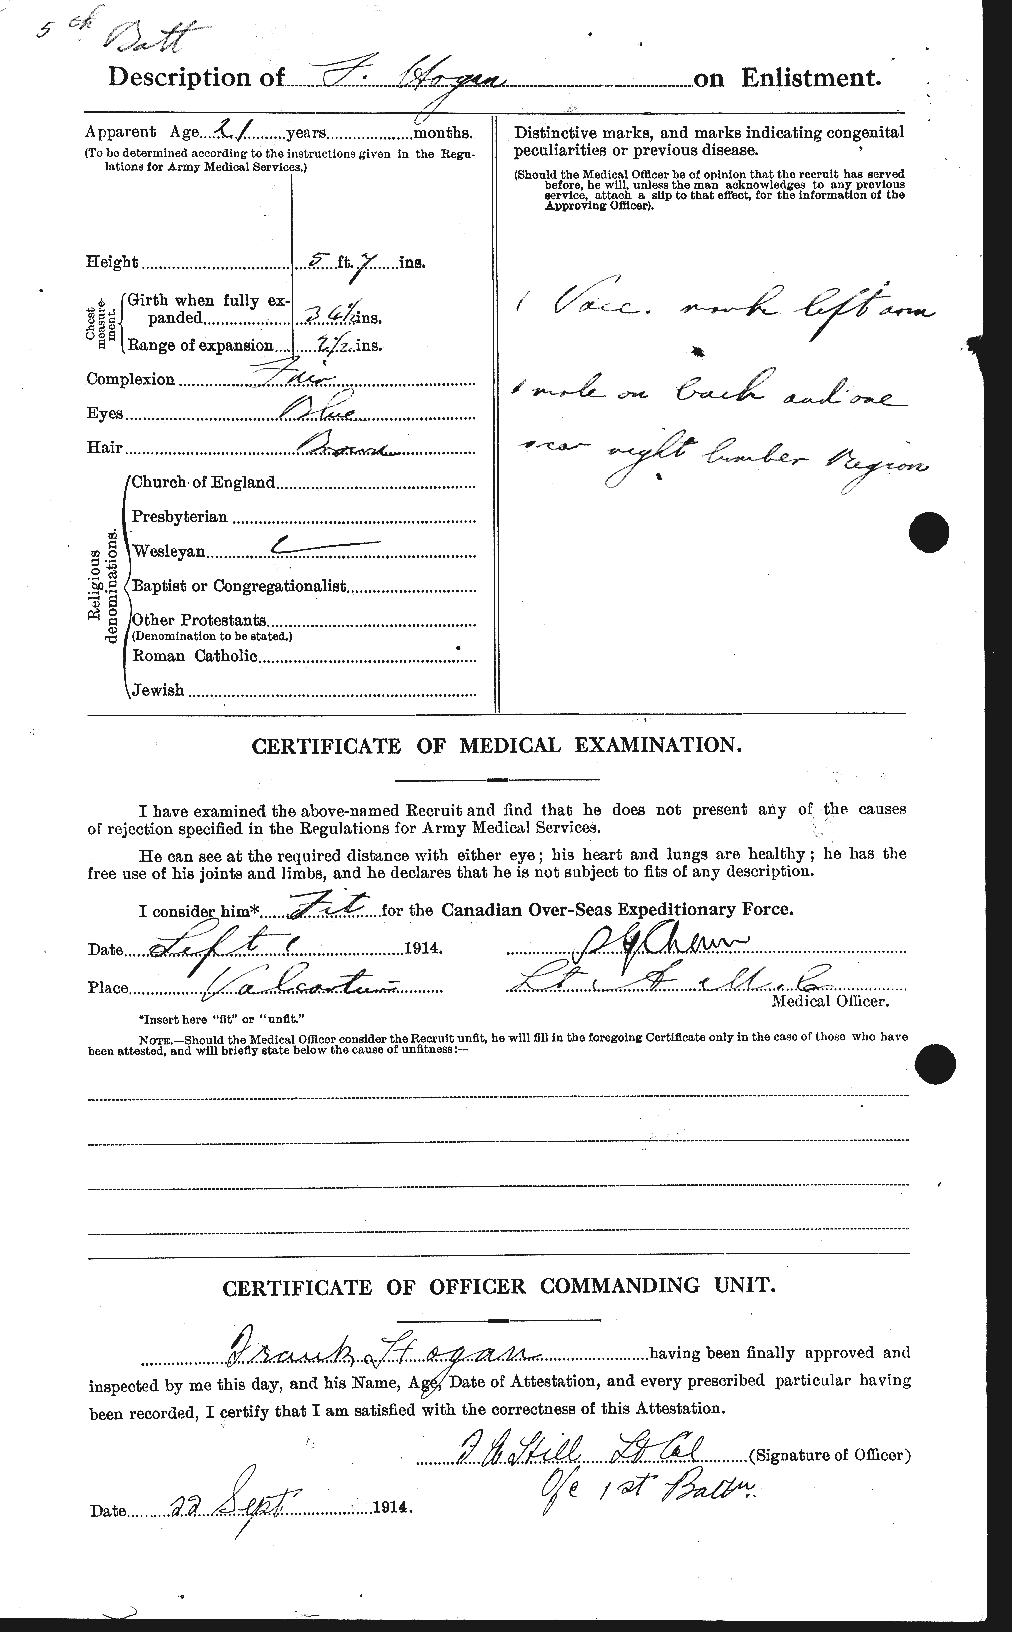 5th Batt
Description of F. Hogan on Enlistment.
Apparent Age 21 years months.
(To be determined according to the instructions given in the Regu-
lations for Army Medical Services.)
Height 5 ft. 7 ins.
Chest measure-ment.
Girth when fully ex-
panded 36½ ins.
Range of expansion 2½ ins.
Complexion Fair
Eyes Blue
Hair Brown
Religious denominations.
Church of England
Presbyterian
Wesleyan
Baptist or Congregationalist
Other Protestants
(Denomination to be stated.)
Roman Catholic
Jewish
Distinctive marks, and marks indicating congenital
peculiarities or previous disease.
(Should the Medical Officer be of opinion that the recruit has served
before, he will, unless the man acknowledges to any previous
service, attach a slip to that effect, for the information of the
Approving Officer).
1 Vacc. mark left arm
1 mole on back and one
near right lumber Region
CERTIFICATE OF MEDICAL EXAMINATION.
I have examined the above-named Recruit and find that he does not present any of the causes
of rejection specified in the Regulations for Army Medical Services.
He can see at the required distance with either eye; his heart and lungs are healthy; he has the
free use of his joints and limbs, and he declares that he is not subject to fits of any description.
I consider him* Fit for the Canadian Over-Seas Expeditionary Force.
Date Sept 1914.
Place Valcartier
Lt. A.M.C
Medical Officer.
*Insert here "fit" or "unfit."
NOTE.—Should the Medical Officer consider the Recruit unfit, he will fill in the foregoing Certificate only in the case of those who have
been attested, and will briefly state below the cause of unfitness:—
CERTIFICATE OF OFFICER COMMANDING UNIT.
Frank Hogan having been finally approved and
inspected by me this day, and his Name, Age, Date of Attestation, and every prescribed particular having
been recorded, I certify that I am satisfied with the correctness of this Attestation.
Lt Col (Signature of Officer)
O/c 1st Battn.
Date 22 Sept 1914.